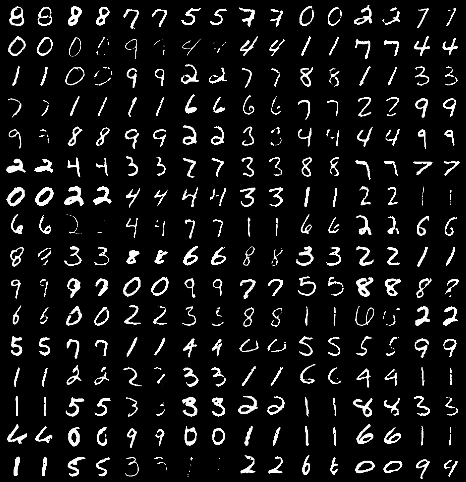 8 8 8 8 7 7 5 5 7 7 0 0 2 2 7 7
0 0 0 0 9 9 4 4 4 4 1 1 7 7 4 4
1 1 0 0 9 9 2 2 7 7 8 8 1 1 3 3
7 7 1 1 1 1 6 6 6 6 7 7 2 2 9 9
9 9 8 8 9 9 2 2 3 3 4 4 4 4 9 9
2 2 4 4 3 3 7 7 3 3 8 8 7 7 7 7
0 0 2 2 4 4 4 4 3 3 1 1 2 2 1 1
6 6 2 4 4 7 7 1 1 6 6 2 2 6 6
8 8 3 3 8 8 6 6 8 8 3 3 2 2 1 1
9 9 9 9 0 0 9 9 7 7 5 5 8 8 8 8
6 6 0 0 2 2 3 3 8 8 1 1 6 2 2
5 5 7 7 1 1 4 4 0 0 5 5 5 5 9 9
1 1 2 2 2 2 3 3 1 1 6 6 4 4 1 1
1 1 5 5 3 3 3 3 2 2 1 1 8 8 3 3
6 6 0 0 9 9 0 0 1 1 1 1 6 6 1 1
1 1 5 5 3 3 1 1 2 2 6 6 0 0 9 9